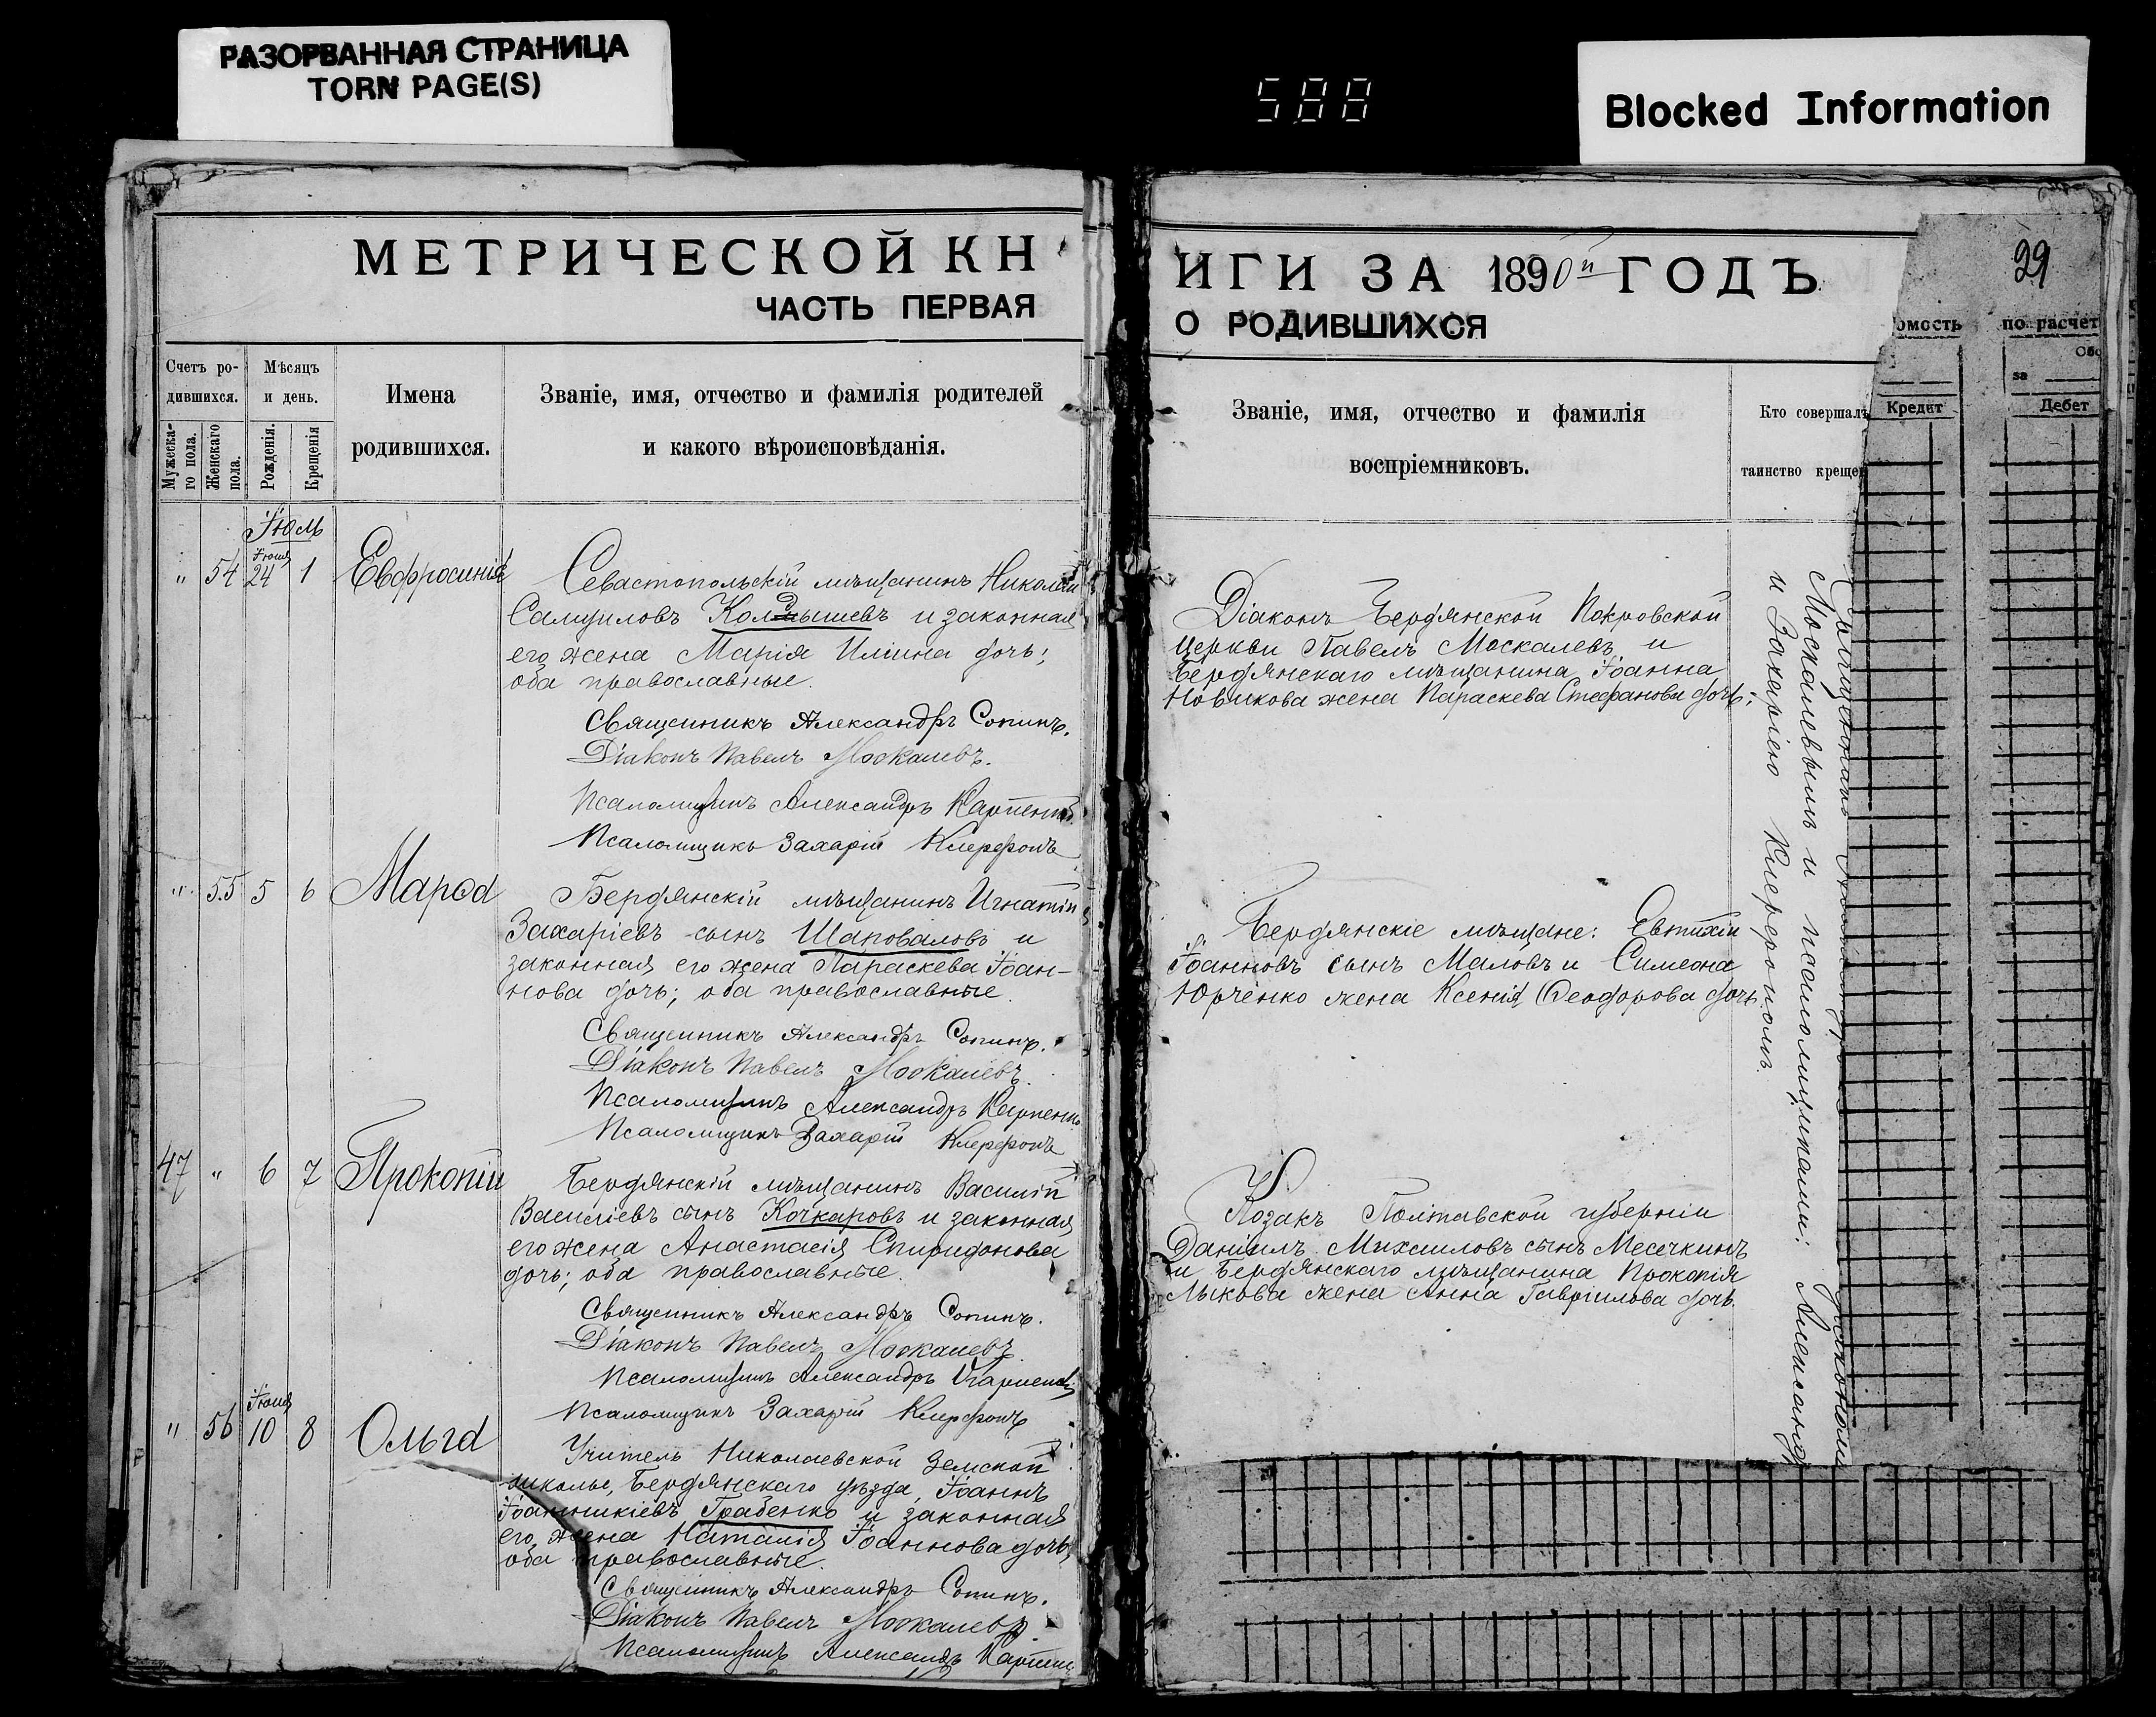 РАЗОРВАННАЯ СТРАНИЦА
TORN PAGE(S)
588
Blocked Information
МЕТРИЧЕСКОЙ КН
ЧАСТЬ ПЕРВАЯ
Счетъ ро-
дившихся.
Мужеска-
го пола.
Женскаго
пола.
Мѣсяцъ
и день.
Рожденія.
Крещенія
Имена
родившихся.
Званіе, имя, отчество и фамилія родителей
и какого вѣроисповѣданія.
Іюль
" 54 Іюня 24 1 Евфросинія
Севастопольскій мѣщанинъ Николай
Самуиловъ Колдышевъ и законная
его жена Марія Иліина дочь;
оба православные.
Священникъ Александръ Сопинъ.
Діаконъ Павелъ Москалевъ.
Псаломщикъ Александръ
Псаломщикъ Захарій
" 55 5 6 Мароа
Бердянскій мѣщанинъ Игнатій
Захаріевъ сынъ Шаповаловъ и
законная его жена Параскева Іоан-
нова дочь; оба православные.
Священникъ Александръ Сопинъ.
Діаконъ Павелъ Москалевъ.
Псаломщикъ Александръ
Псаломщикъ Захарій
47 " 6 7 Прокопій
Бердянскій мѣщанинъ Василій
Василіевъ сынъ Кочкаровъ и законная
его жена Анастасія Спиридонова
дочь; оба православные.
Священникъ Александръ Сопинъ.
Діаконъ Павелъ Москалевъ.
Псаломщикъ Александръ
Псаломщикъ Захарій
" 56 Іюня 10 8 Ольга
Учитель Николаевской Земской
школы, Бердянскаго уѣзда, Іоаннъ
Іоанникіевъ Грабенко и законная
его жена Наталія Іоаннова дочь,
оба православные.
Священникъ Александръ Сопинъ.
Діаконъ Павелъ Москалевъ.
Псаломщикъ Александръ
ИГИ ЗА 1890й ГОДЪ
О РОДИВШИХСЯ
Званіе, имя, отчество и фамилія
воспріемниковъ.
Кто совершалъ
таинство креще
Діаконъ Бердянской Покровской
церкви Павелъ Москалевъ и
Бердянскаго мѣщанина Іоанна
Новикова жена Параскева Стефанова дочь;
Бердянскіе мѣщане: Евтихій
Іоанновъ сынъ Маловъ и Симеона
Юрченко жена Ксенія Ѳеодорова дочь.
Козакъ Полтавской губерніи
Даніилъ Михаиловъ сынъ Месечкинъ
и Бердянскаго мѣщанина Прокопія
Лыкова жена Анна Гавріилова дочь.
Москалевымъ и псаломщиками: Александр
и Захаріею
29
омость по расчет
за
Кредит
Дебет